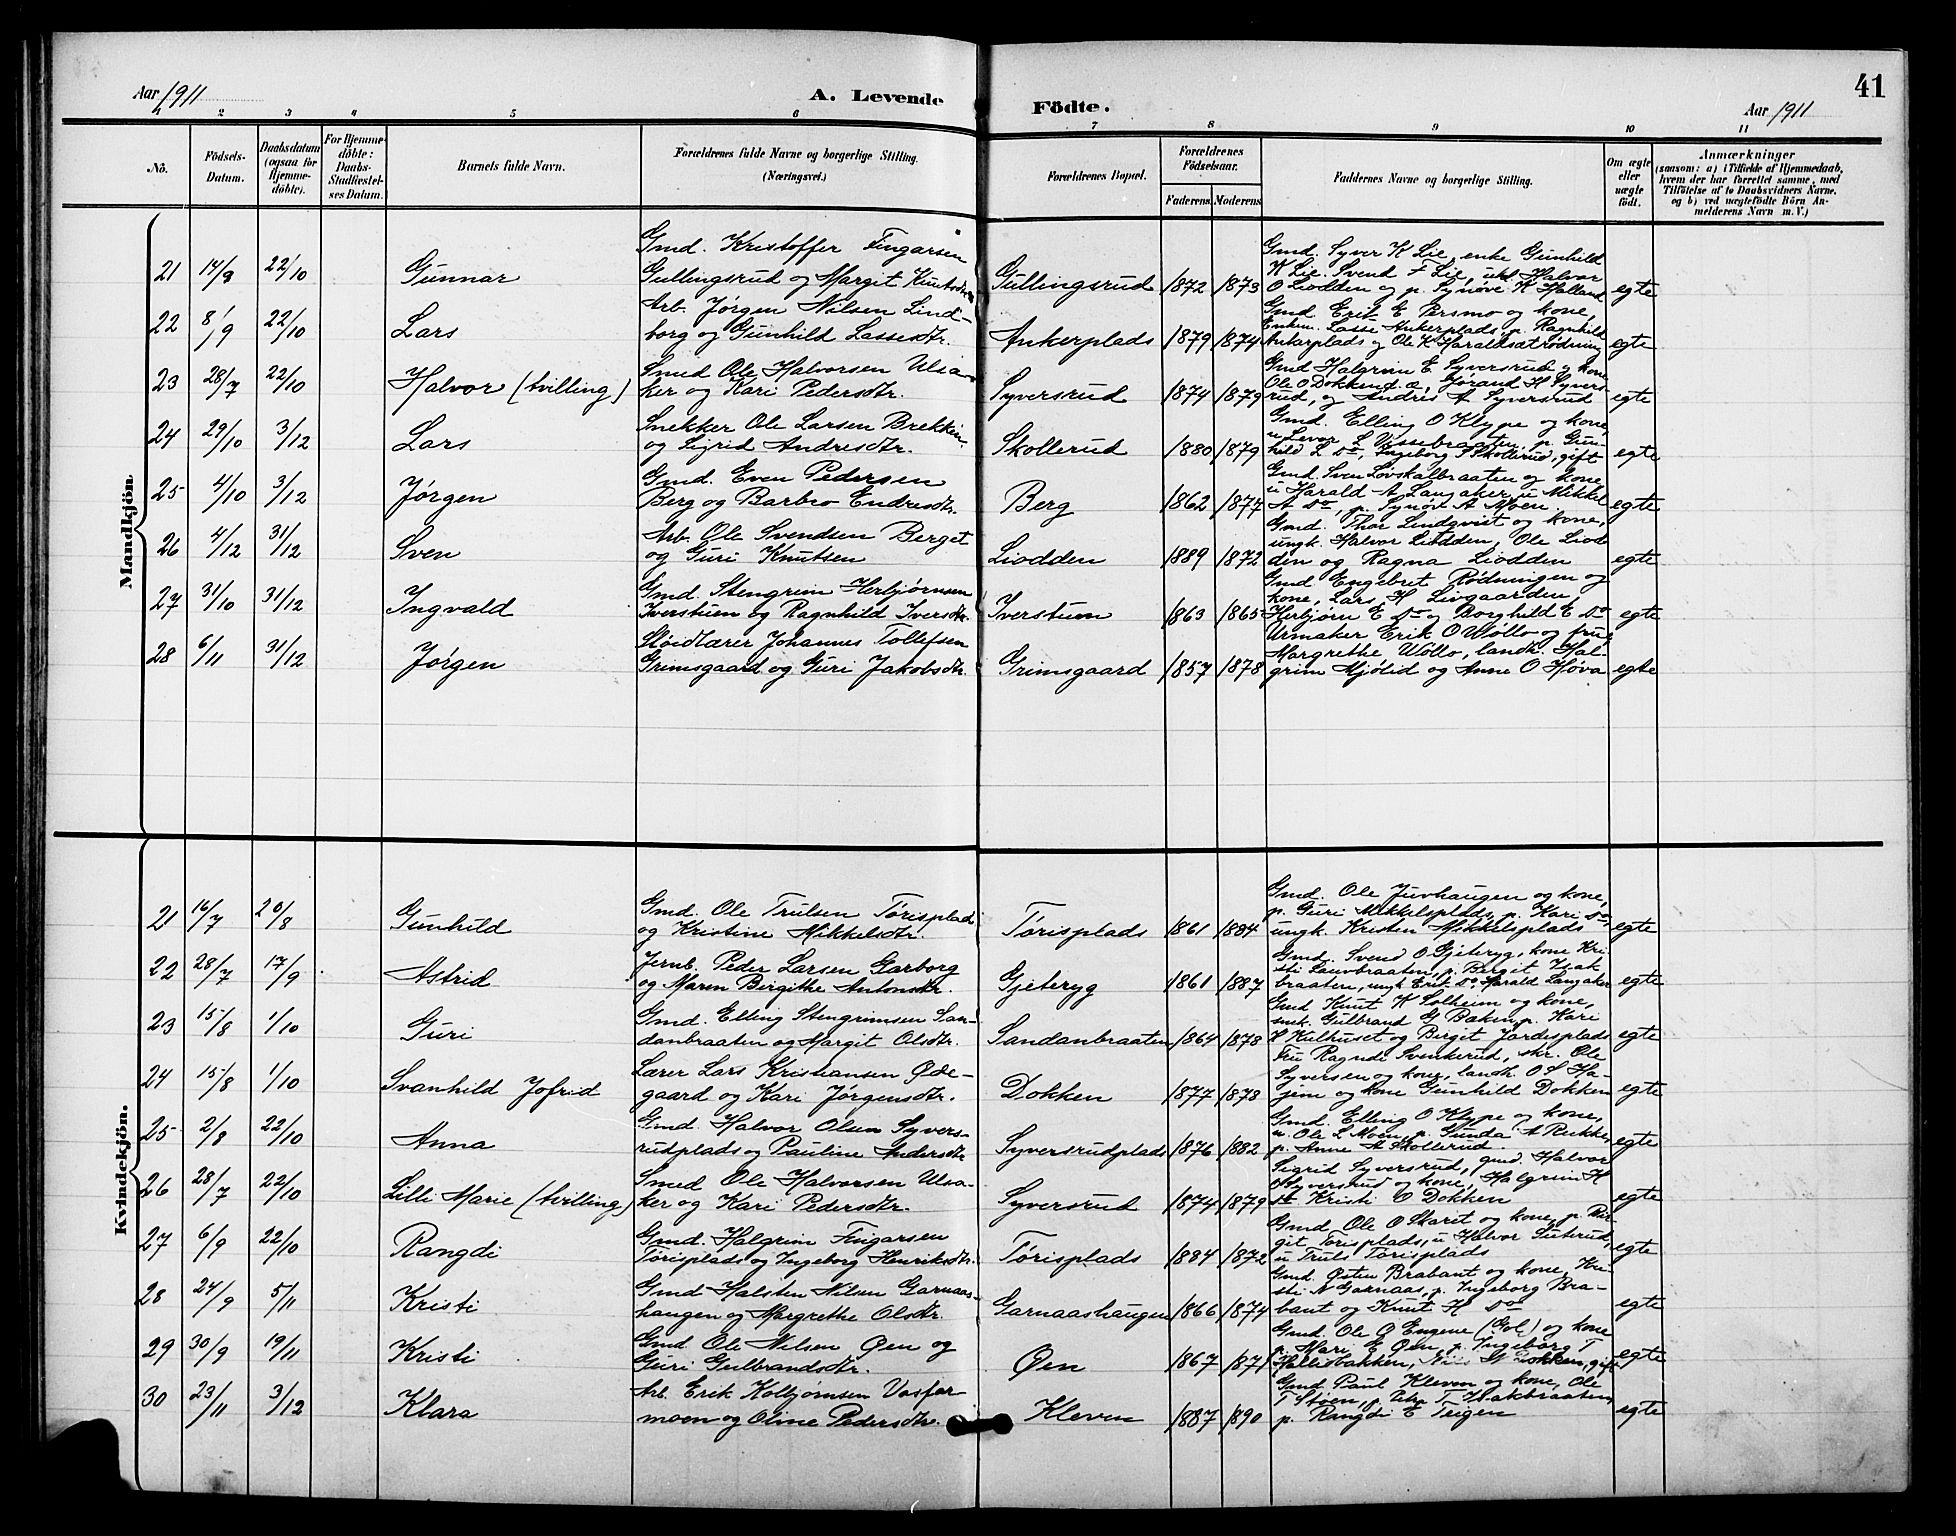 Aar 1911
A. Levende
Födte.
Aar 1911
41
1 2 3 4 5 6 7 8 9 10 11
No.
Födsels-
Datum.
Daabsdatum
(ogsaa for
Hjemme-
döbte).
For Hjemme-
döbte:
Daabs-
Stadfæstel-
ses Datum.
Barnets fulde Navn.
Forældrenes fulde Navne og borgerlige Stilling.
(Næringsvei.)
Forældrenes Bopæl.
Forældrenes
Födselsaar.
Faderens. Moderens.
Faddernes Navne og borgerlige Stilling.
Om ægte
eller
uægte
födt.
Anmærkninger
(saasom: a) i Tilfælde af Hjemmedaab,
hvem der har forrettet samme, med
Tilföielse af to Daabsvidners Navne,
og b) ved uægtefödte Börn An-
melderens Navn m. V.)
Mandkjön.
21 14/8 22/10 Gunnar
Gmd. Kristoffer Fingarsen
Gullingsrud og Margit Knutsdtr.
Gullingsrud 1872 1873
Gmd. Syver K Lie, enke Gunhild
K Lie. Svend F Lie, ukl Halvor
O Liodden og p. Synøve K Halland
egte
22 8/9 22/10 Lars
Arb. Jørgen Nilsen Lind-
borg og Gunhild Lassesdtr.
Ankerplads 1879 1874
Gmd. Erik E Persmo og kone,
Enkem. Lasse Ankerplads, p. Ragnhild
Ankerplads og Ole K Haraldsætrødning
egte
23 28/7 22/10 Halvor (tvilling)
Smed Ole Halvorsen Ulsa-
ker og Kari Pedersdtr.
Syversrud 1874 1879
Gmd Halgrim E Syversrud og kone
Ole O Dokken d. æ, Jørand H Syvers-
rud, og Andris A Syversrud
egte
24 29/10 3/12 Lars
Snekker Ole Larsen Brekkin-
og Sigrid Andresdtr.
Skollerud 1880 1879
Gmd. Elling O Klype og kone,
u Levor L Vissebraaten p. Gun-
hild L do, Ingeborg P Skollerud, gift
egte
25 4/10 3/12 Jørgen
Gmd. Even Pedersen
Berg og Barbro Endresdtr.
Berg 1862 1877
Gmd. Sven Løvskalbraaten og kone
u Harald A Langaker u Mikkel
A do, p. Synøv A Moen.
egte
26 4/12 31/12 Sven
Arb. Ole Svendsen Berget
og Guri Knutsen
Liodden 1889 1872
Gmd. Thor Lindqvist og kone,
ungk. Halvor Liodden, Ole Liod
den og Ragna Liodden
egte
27 31/10 31/12 Ingvald
Gmd. Stengrim Herbjørnsen
Iverstuen og Ragnhild Iversdtr.
Iverstuen 1863 1865
Gmd Engebret Rødningen og
kone, Lars H Livgaarden,
Herbjørn E do og Borghild E do
egte
28 6/11 31/12 Jørgen
Sløidlærer Johannes Tollefsen
Grimsgaard og Guri Jakobsdtr.
Grimsgaard 1857 1878
Urmaker Erik O Wøllo og frue
Margrethe Wøllo, landh. Hal-
grim Mjølid og Anne O Høva
egte
Kvindekjön.
21 16/7 20/8 Gunhild
Gmd. Ole Trulsen Tørisplads
og Kristine Mikkelsdtr.
Tørisplads 1861 1884
Gmd. Ole Juvhaugen og kone,
p. Guri Mikkelsplads, p. Kari do
ungk. Kristen Mikkelsplads
egte
22 28/7 17/9 Astrid
Jernb. Peder Larsen Garborg
og Maren Birgithe Antonsdtr.
Gjeteryg 1861 1887
Gmd. Svend O Gjeteryg, kone Kri
sti Lauvbraaten, p. Bergit Isak
braaten, ungk Erik do, Harald Langaker
egte
23 15/8 1/10 Guri
Gmd. Elling Stengrimsen San-
danbraaten og Margit Olsdtr.
Sandanbraaten 1864 1878
Gmd Knut K Solheim og kone,
snek. Gulbrand G Baken p. Kari
H Kulhuset og Birgit Jordesplads
egte
24 15/8 1/10 Svanhild Jofrid
Lærer Lars Kristiansen Øde-
gaard og Kari Jørgensdtr.
Dokken 1877 1878
Fru Ragndi Svenkerud, skr. Ole
Syversen og kone, landh. O S Ha-
jem og kone Gunhild Dokken
egte
25 2/8 22/10 Anna
Gmd. Halvor Olsen Syvers-
rudplads og Pauline Andersdtr
Syversrudplads 1876 1882
Gmd. Elling O Klype og kone,
u. Ole L Moen, p. Gunda A Rukke,
p. Anne A Skollerud
egte
26 28/7 22/10 Lilli Marie (tvilling)
Smed Ole Halvorsen Ulsa-
ker og Kari Pedersdtr.
Syversrud 1874 1879
Sigrid Syversrud, gmd. Halvor
Syversrud og kone, Halgrim H
do Kristi O Dokken
egte
27 6/9 22/10 Rangdi
Gmd. Halgrim Fingarsen
Tørisplads og Ingeborg Henriksdtr.
Tørisplads 1884 1872
Gmd Ole O Skaret og kone, p. Bir-
git Torisplads, u Halvor Suterud,
u Truls Tørisplads
egte
28 24/9 5/11 Kristi
Gmd Halsten Nilsen Garnaas-
haugen og Margrethe Olsdtr.
Garnaashaugen 1866 1874
Gmd. Østen Brabant og kone, Kri-
sti N Garnaas, p. Ingeborg Bra-
bant og Knut H do
egte
29 30/9 19/11 Kristi
Gmd Ole Nilsen Øen og
Guri Gulbrandsdtr.
Øen 1867 1871
Gmd. Ole O Engene (Gol) og kone
p. Mari E Øen, p. Ingeborg T
Hellisbakken, Nils N Dokken, gift
egte
30 23/11 3/12 Klara
Arb. Erik Kolbjørnsen Vasfar
moen og Oline Pedersdtr.
Kleven 1887 1890
Gmd Paul Kleven og kone, Ole
T Støen, p T Isakbraaten,
p. Rangdi E Trigen
egte